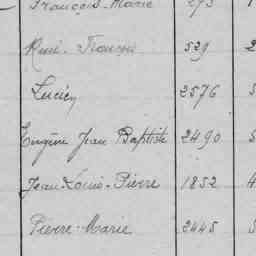 François-Marie 293
René-François 529 2
Lucien 2576 5
Eugène Jean Baptiste 2490 5
Jean-Louis-Pierre 1852 4
Pierre-Marie 2445 5